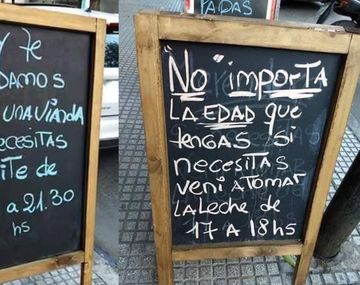 Y te
DAMOS
UNA VIANDA
NECESITAS
DE
a 21.30
hs
"NO importa
LA EDAD que
tengas si
necesitas
vení A TOMAR
LA Leche de
17 A 18hs